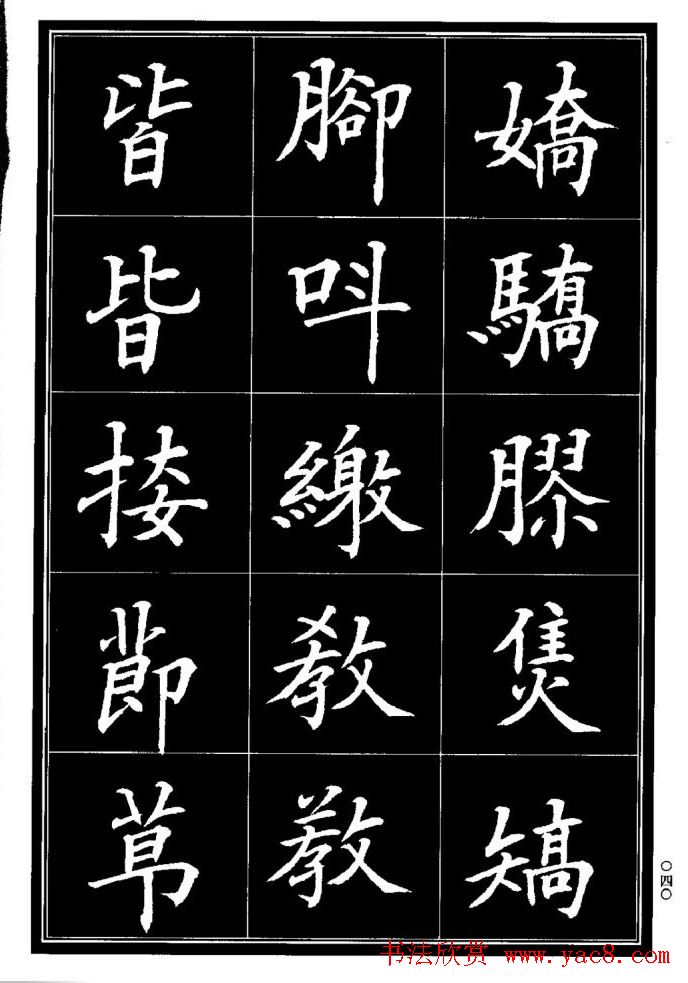 嬌驕膠焦矯
腳呌繳教教
皆皆接莭
〇四〇
书法欣赏 www.yac8.com